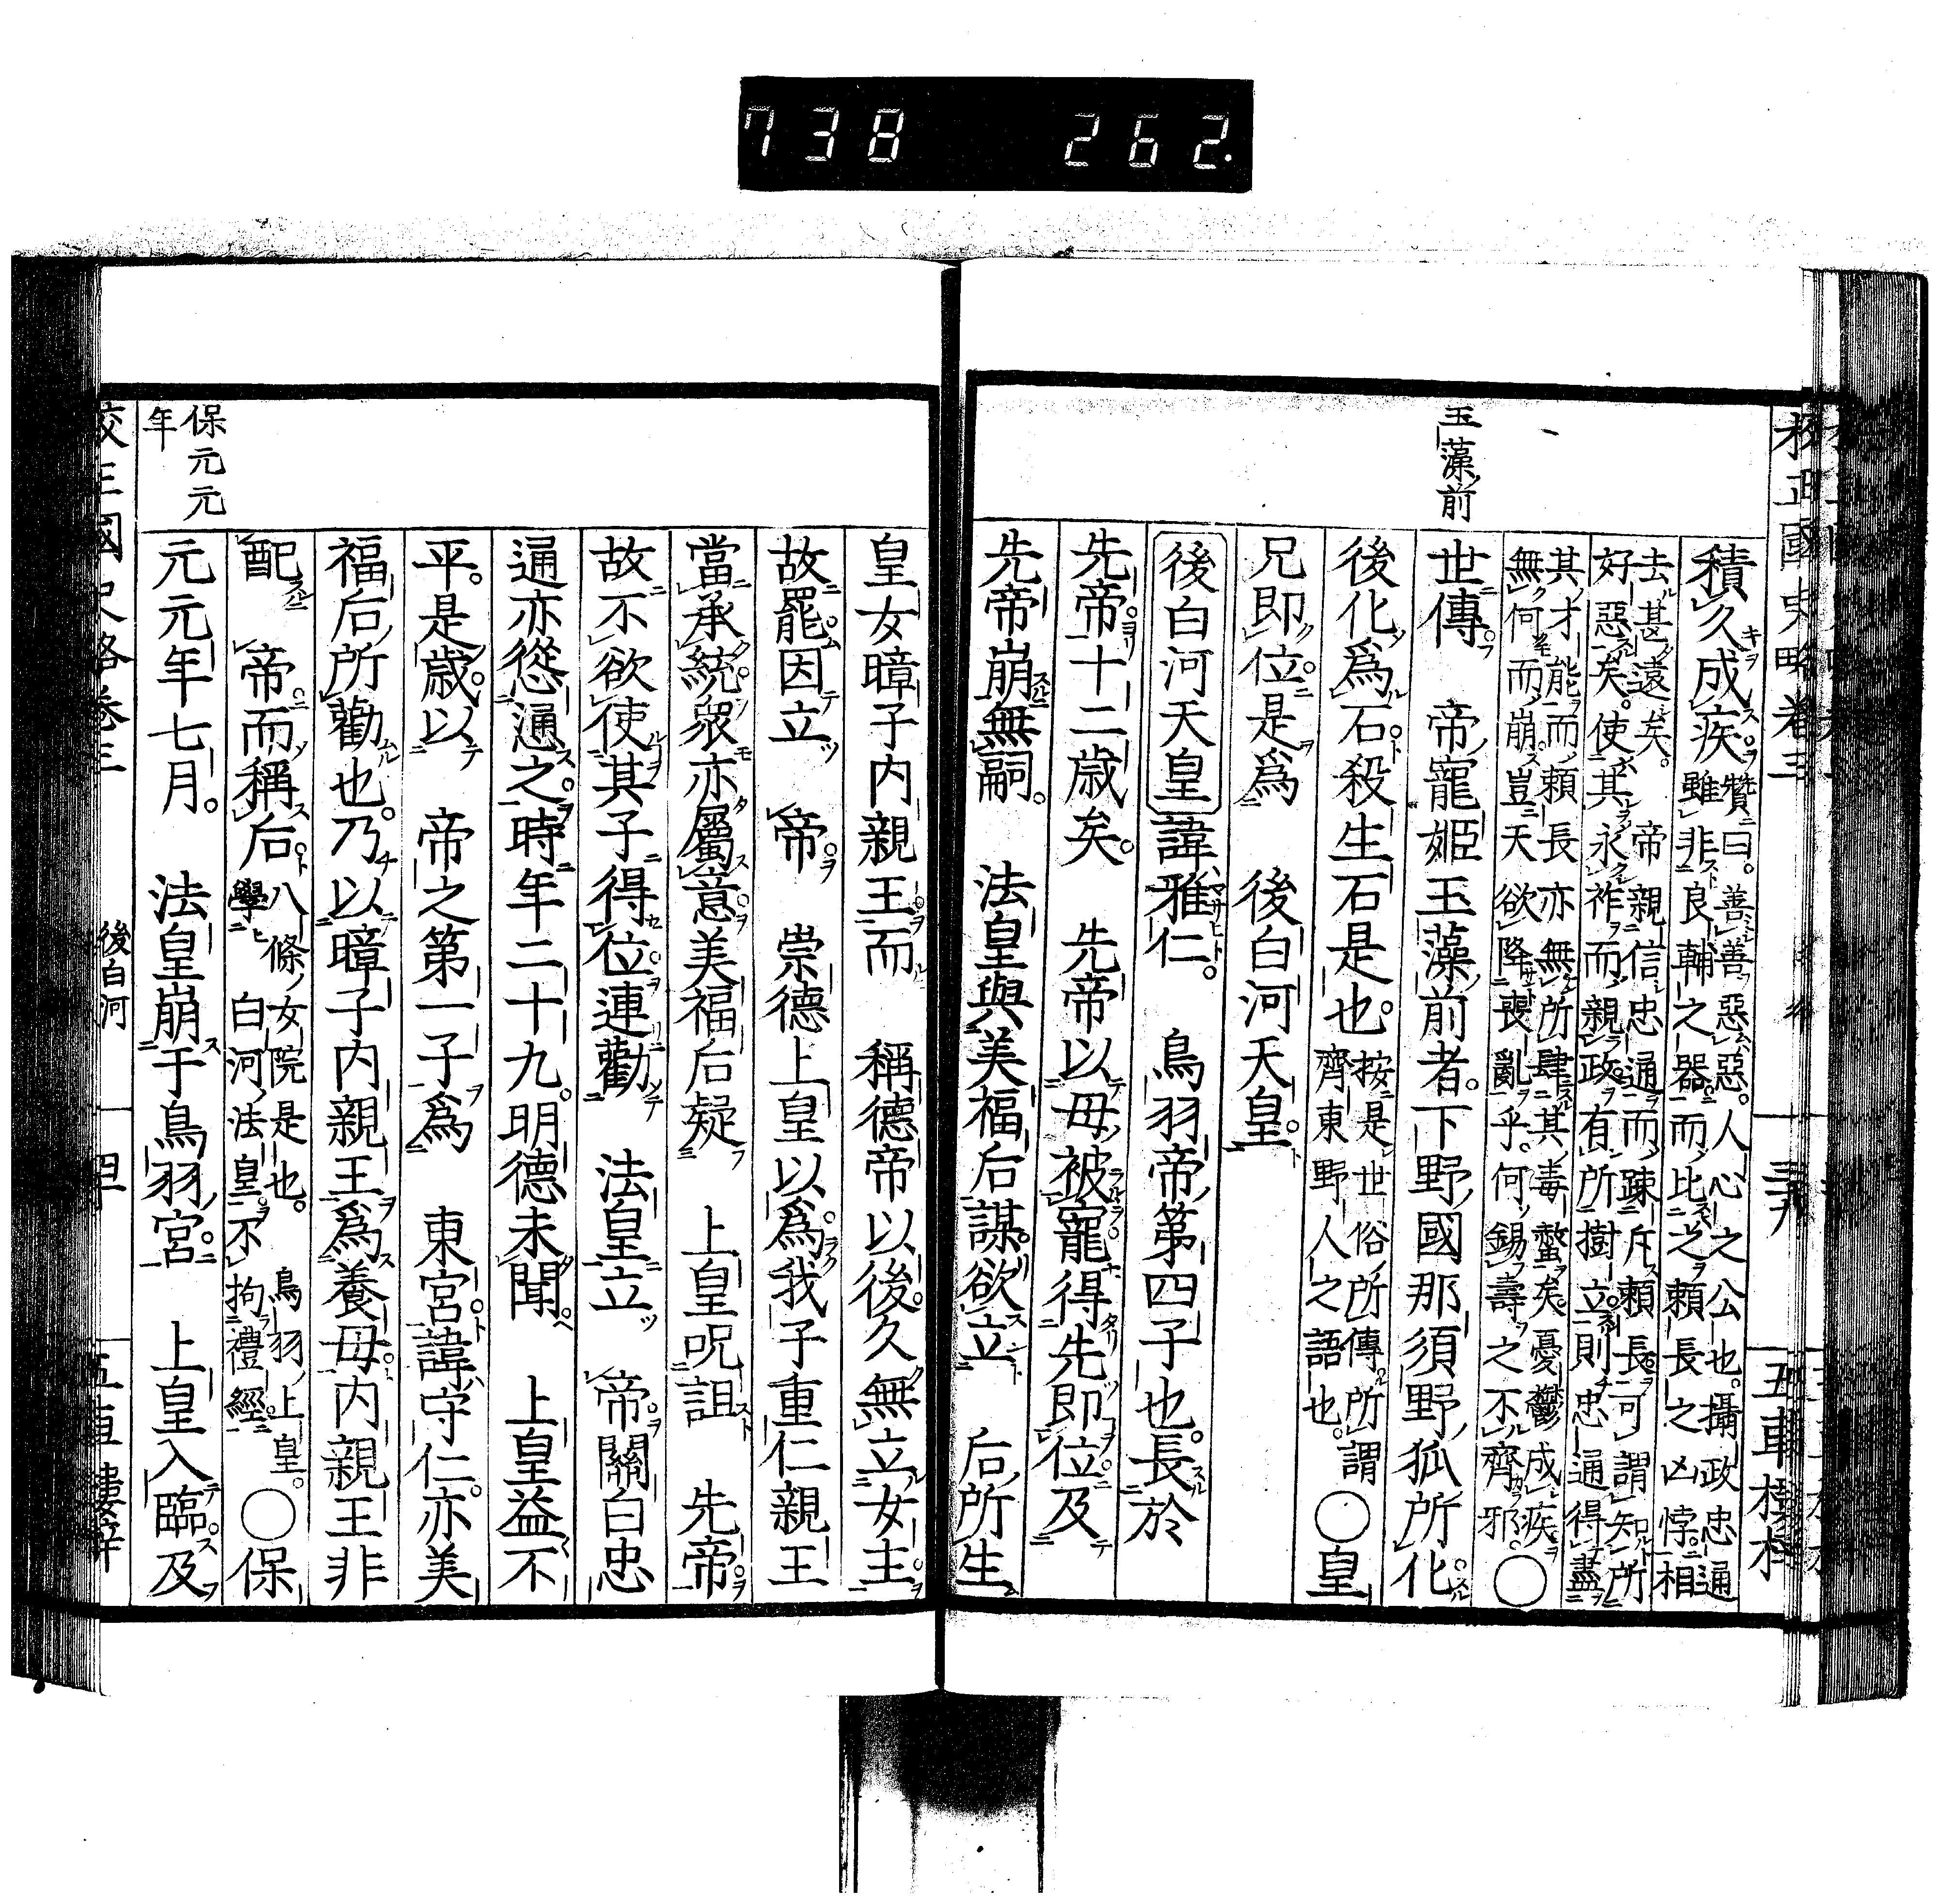 738 262.
校正國史略卷三
三十九
五車樓梓
玉藻前
積久成疾贊曰善善惡惡人心之公也攝政忠通
雖非良輔之器而比之賴長之凶悖相
去甚遠矣。帝親信忠通而疎斥賴長可謂知所
好惡矣。使其永祚而親政有所樹立則忠通得盡
其才能而賴長亦無所肆其毒螫矣憂鬱成疾
無何而崩豈天欲降喪亂乎。何錫壽之不齊邪。〇
世傳 帝寵姬玉藻前者。下野國那須野狐所化
後化爲石殺生石是也。按是世俗所傳所謂
齊東野人之語也。〇皇
兄即位是爲 後白河天皇。
後白河天皇諱雅仁。 鳥羽帝第四子也。長於
先帝十二歳矣。 先帝以母被寵得先即位及
先帝崩無嗣。 法皇與美福后謀欲立 后所生
皇女暲子内親王而 稱德帝以後久無立女主
故罷因立 帝 崇德上皇以爲我子重仁親王
當承統衆亦屬意美福后疑 上皇呪詛 先帝
故不欲使其子得位連勸 法皇立 帝關白忠
通亦慫慂之。時年二十九。明德未聞 上皇益不
平。是歳以 帝之第一子爲 東宮諱守仁。亦美
福后所勸也。乃以暲子内親王爲養母内親王非
配 帝而稱后八條女院是也。 鳥羽上皇。
學 白河法皇不拘禮經 〇保
元元年七月。 法皇崩于鳥羽宮 上皇入臨及
保元元
年
國史略卷三
後白河